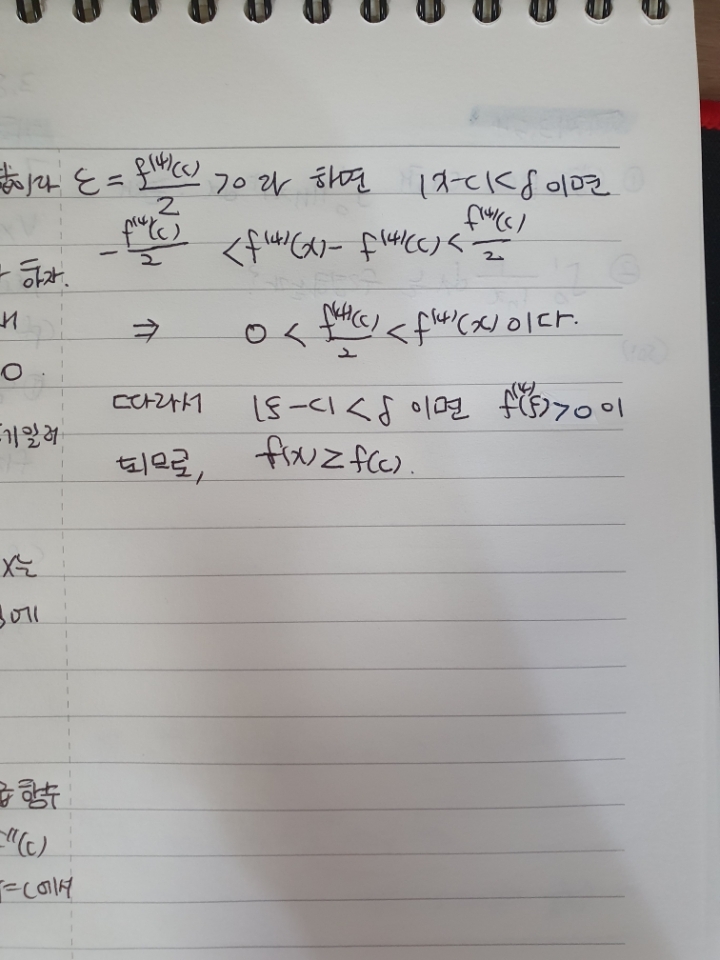 이라 ε = f⁽⁴⁾(c)/2 >0 라 하면 |x-c|<δ 이면
-f⁽⁴⁾(c)/2 < f⁽⁴⁾(x) - f⁽⁴⁾(c) < f⁽⁴⁾(c)/2
하자.
⇒ 0 < f⁽⁴⁾(c)/2 < f⁽⁴⁾(x) 이다.
0.
따라서 |ξ-c| < δ 이면 f⁽⁴⁾(ξ)>0 이
되므로, f(x) ≥ f(c).
x는
에
함수
"(c)
=c에서